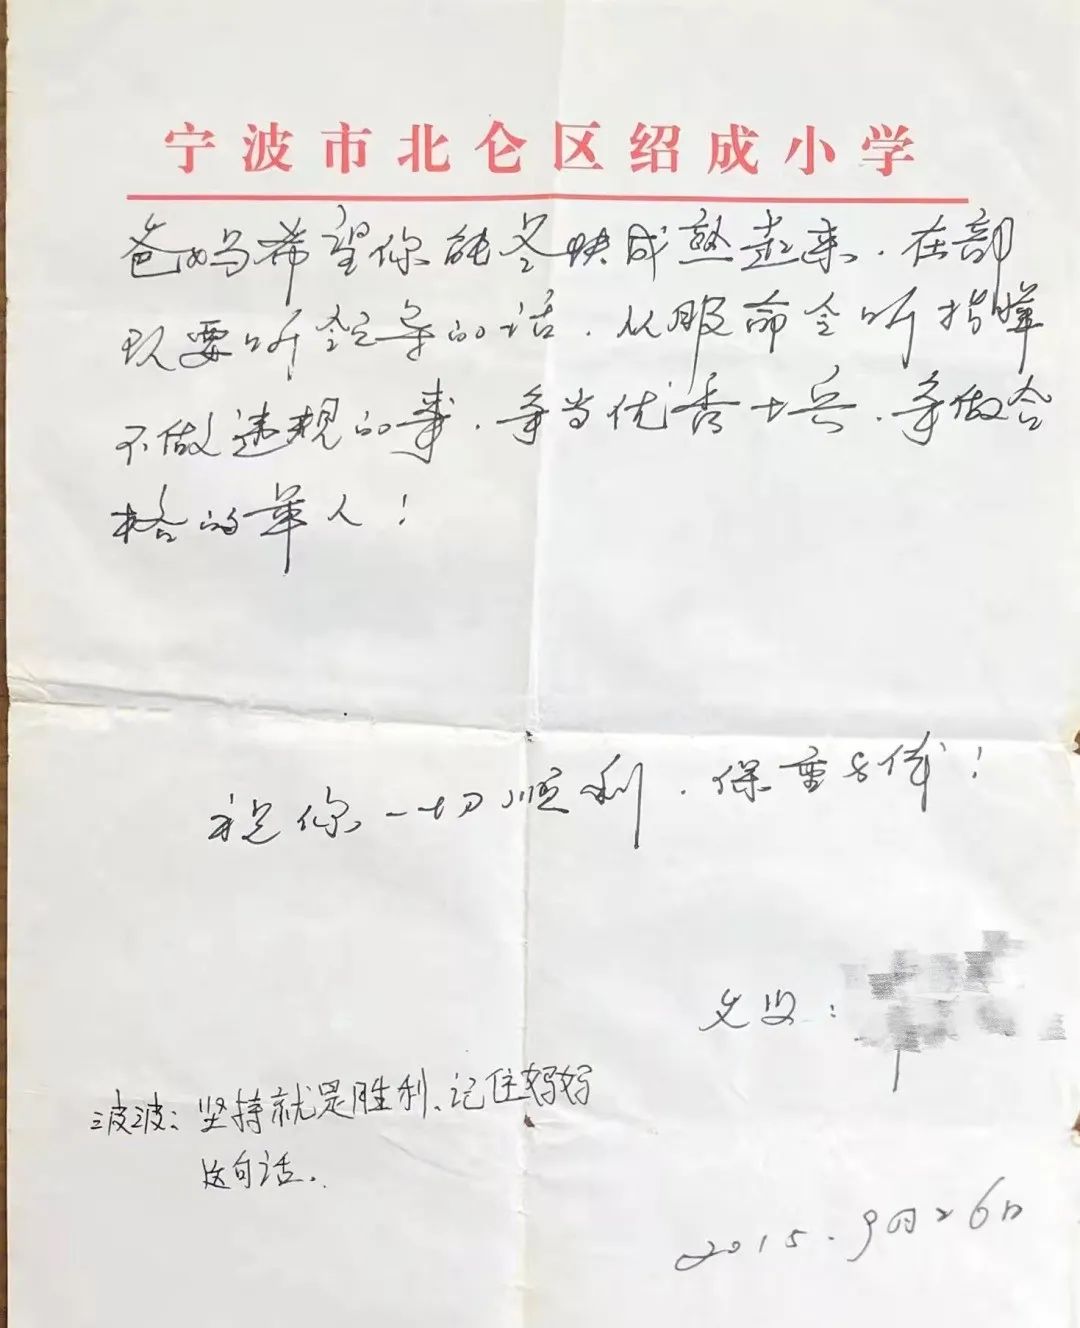 宁波市北仑区绍成小学
爸妈希望你能尽快成熟起来.在部
队要听领导的话.从服命令听指挥
不做违规的事.争当优秀士兵.争做合
格的军人!
祝你一切顺利.保重身体!
父母:
波波:坚持就是胜利、记住妈妈
这句话.
2015.9月26日